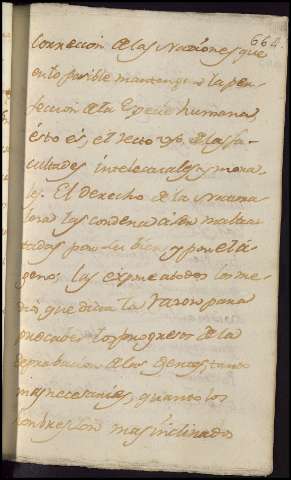 664.
correccion de las naciones que
en lo posible mantengan la per-
feccion de la Especie humana,
ésto es, el recto uso de las fa-
cultades intelectuales, y mora-
les. El derecho de la natura
las condena á ser maltra-
tadas por su bien, y por el á-
geno; las
que dicta la razon para
precaber los progresos de la
depravacion de las gentes, tanto
mas necesarios, quanto los
hombres son mas inclinados